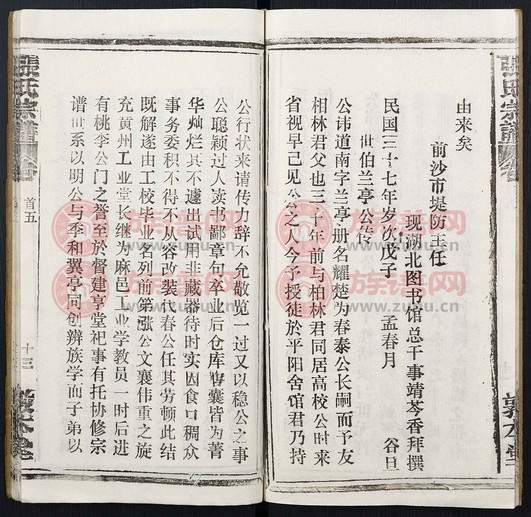 由来矣
前沙市堤防主任
现湖北图书馆总干事靖芩香拜撰
民国三十七年岁次戊子 孟春月 谷旦
世伯兰亭公传
公讳道南字兰亭册名耀楚为春泰公长嗣而予友
柏林君父也三十年前与柏林君同居高校公时来
省视早己见公之人今予授徒於平阳舍馆君乃持
公行状来请传力辞不允敬览一过又以稳公之事
公聪颖过人读书鄙章句卒业后仓库暨囊皆为菁
华灿烂其不遽出试用韭藏器待时实因食口稠众
事务委积不得不从容改装代春公任其劳顿此结
既解遂由工校毕业名列前第涨公文襄伟重之旋
充黄州工业堂长继为麻邑工业学教员一时后进
有桃李公门之誉至於督建享堂祀事有托协修宗
谱世系以明公与季和翼亭同创辨族学而子弟以
張氏宗譜
首五
十三
敦本堂
張氏宗譜
敦本堂
族譜网
zupu.cn